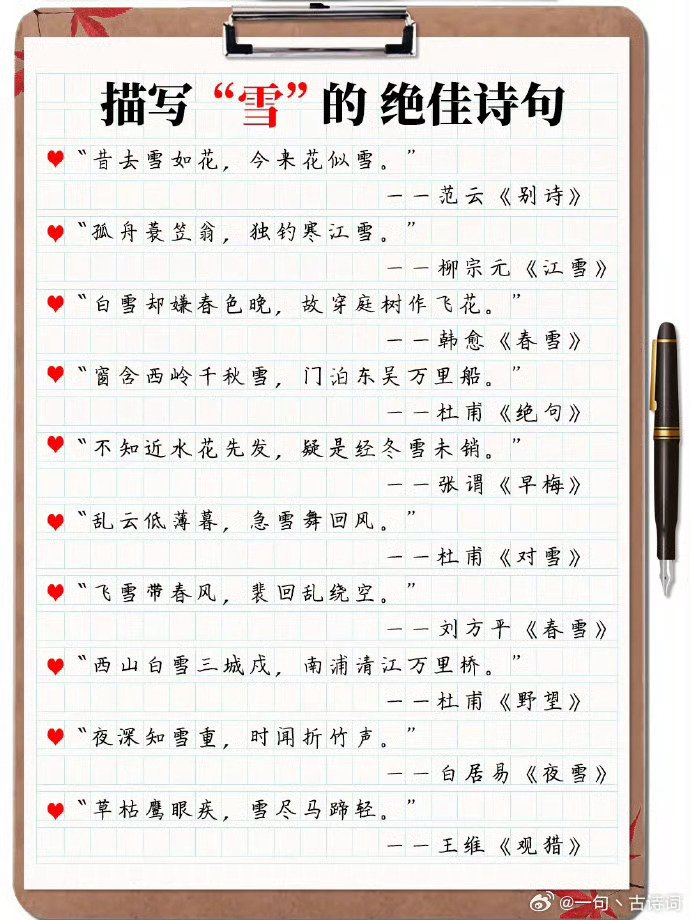 描写“雪”的 绝佳诗句
“昔去雪如花，今来花似雪。”
——范云《别诗》
“孤舟蓑笠翁，独钓寒江雪。”
——柳宗元《江雪》
“白雪却嫌春色晚，故穿庭树作飞花。”
——韩愈《春雪》
“窗含西岭千秋雪，门泊东吴万里船。”
——杜甫《绝句》
“不知近水花先发，疑是经冬雪未销。”
——张谓《早梅》
“乱云低薄暮，急雪舞回风。”
——杜甫《对雪》
“飞雪带春风，裴回乱绕空。”
——刘方平《春雪》
“西山白雪三城戍，南浦清江万里桥。”
——杜甫《野望》
“夜深知雪重，时闻折竹声。”
——白居易《夜雪》
“草枯鹰眼疾，雪尽马蹄轻。”
——王维《观猎》
@一句丶古诗词